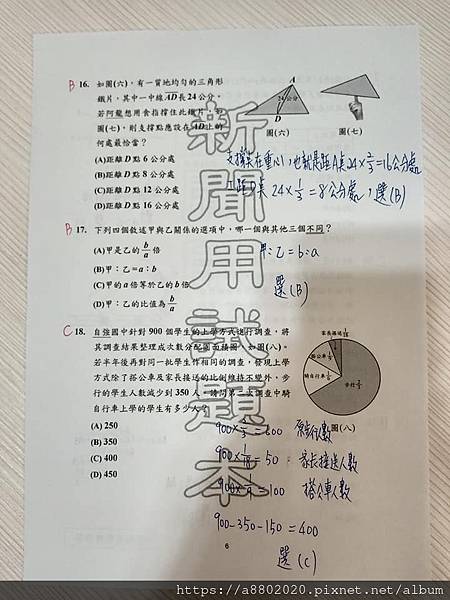 B 16. 如圖(六)，有一質地均勻的三角形
鐵片，其中一中線AD長24公分。
若阿龍想用食指撐住此鐵片，如
圖(七)，則支撐點應設在AD上的
何處最恰當？
(A)距離D點6公分處
(B)距離D點8公分處
(C)距離D點12公分處
(D)距離D點16公分處
A
24公分
D
圖(六)
圖(七)
支撐點在重心，也就是距A點24×2/3=16公分處
距D點24×1/3=8公分處，選(B)
B 17. 下列四個敘述甲與乙關係的選項中，哪一個與其他三個不同？
(A)甲是乙的b/a倍
(B)甲：乙=a：b
(C)甲的a倍等於乙的b倍
(D)甲：乙的比值為b/a
甲:乙=b:a
選(B)
C 18. 自強國中針對900個學生的上學方式進行調查，將
其調查結果整理成次數分配圓面積圖，如圖(八)。
若半年後再對同一批學生作相同的調查，發現上學
方式除了搭公車及家長接送的比例維持不變外，步
行的學生人數減少到350人。請問第二次調查中騎
自行車上學的學生有多少人？
(A) 250
(B) 350
(C) 400
(D) 450
家長接送1/18
搭公車1/9
騎自行車1/6
步行2/3
圖(八)
900×2/3=600
900×1/18=50 家長接送人數
900×1/9=100 搭公車人數
900-350-150=400
選(C)
6
新聞用試題本
https://a8802020.pixnet.net/album